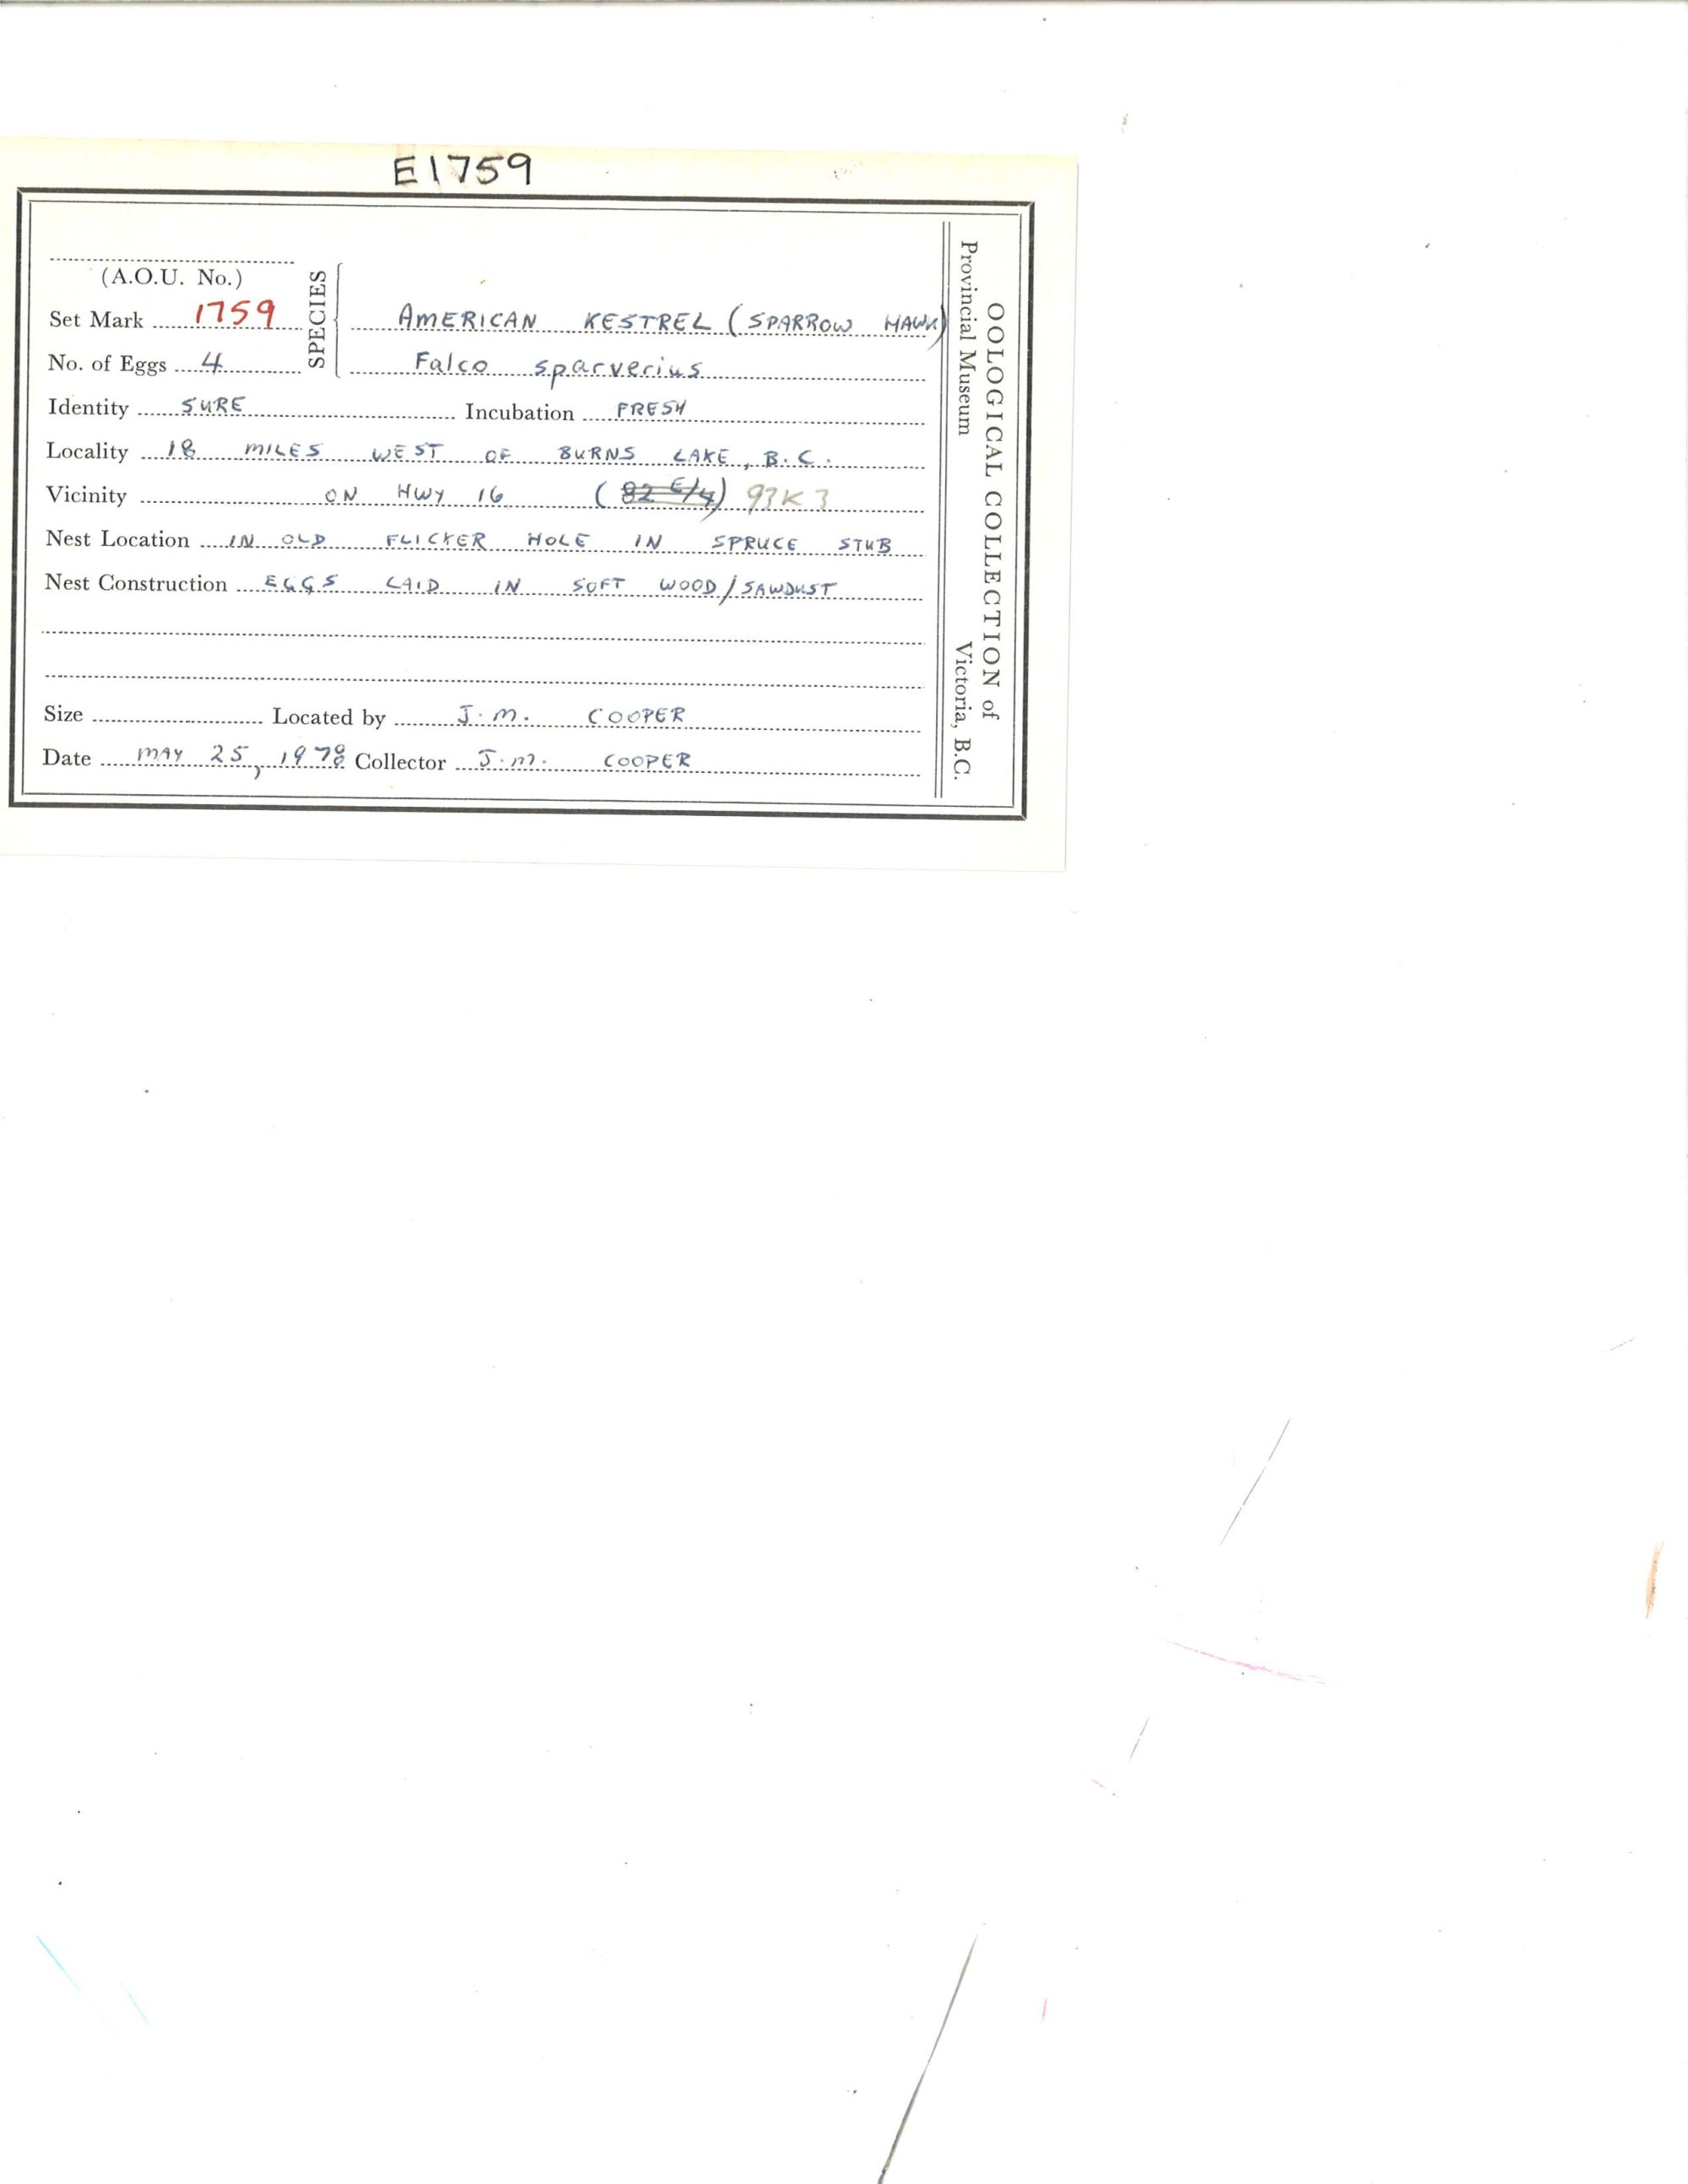 E1759
(A.O.U. No.)
SPECIES
Set Mark 1759
AMERICAN KESTREL (SPARROW HAWK)
No. of Eggs 4
Falco sparverius
Identity SURE Incubation FRESH
Locality 18 MILES WEST OF BURNS LAKE, B.C.
Vicinity ON HWY 16 (82 E/4) 93K3
Nest Location IN OLD FLICKER HOLE IN SPRUCE STUB
Nest Construction EGGS LAID IN SOFT WOOD/SAWDUST
Size Located by J.M. COOPER
Date MAY 25, 1978 Collector J.M. COOPER
OOLOGICAL COLLECTION of
Provincial Museum Victoria, B.C.